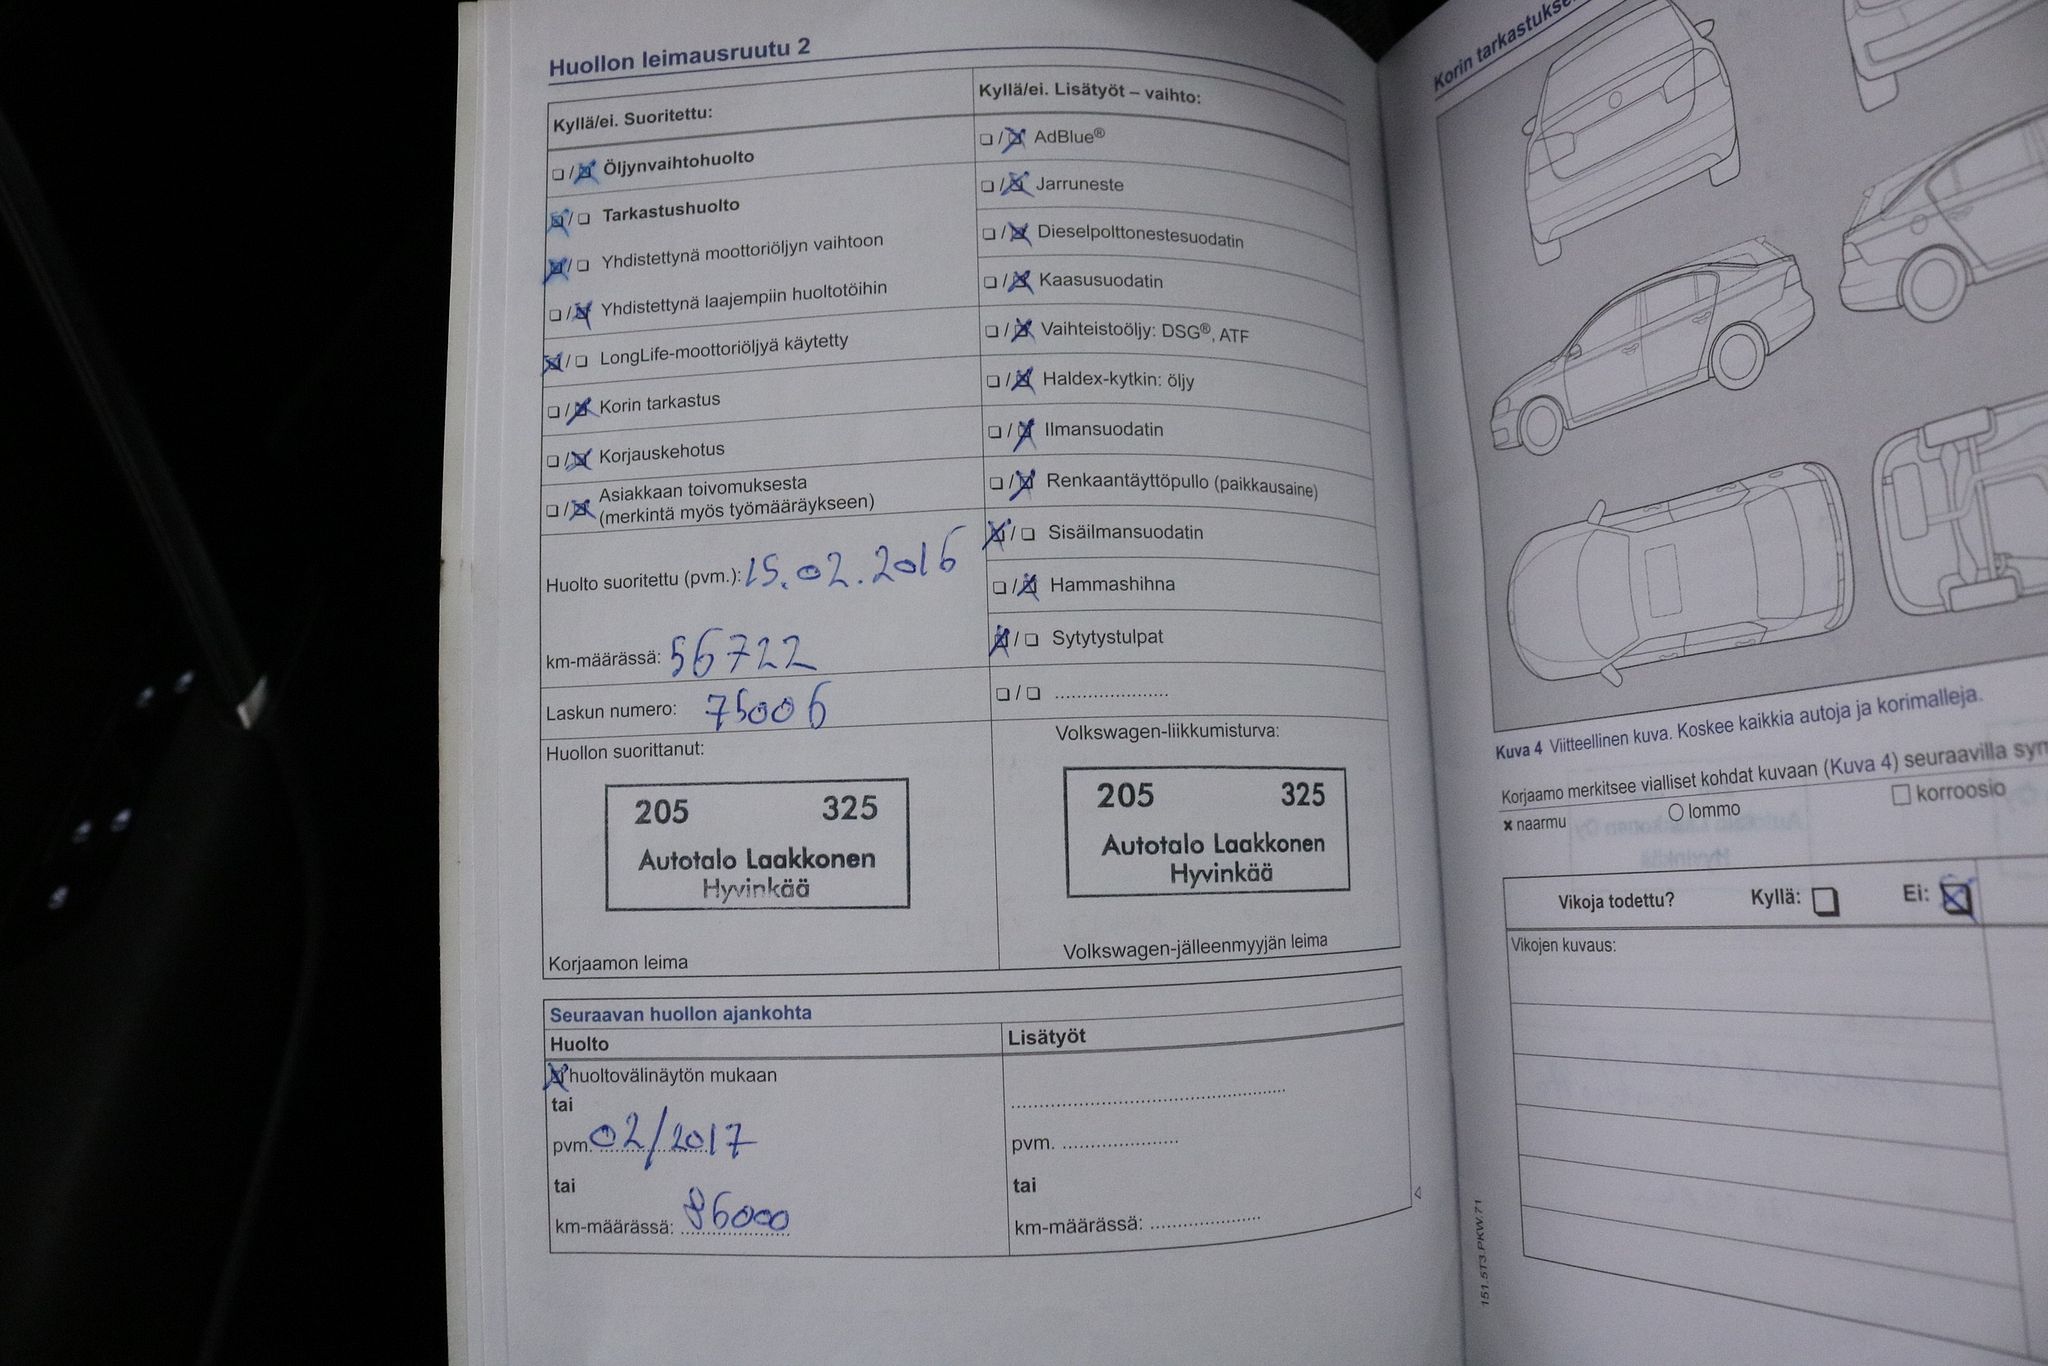 Huollon leimausruutu 2
Kyllä/ei. Suoritettu:
☐ / ☒ Öljynvaihtohuolto
☒ / ☐ Tarkastushuolto
☒ / ☐ Yhdistettynä moottoriöljyn vaihtoon
☐ / ☒ Yhdistettynä laajempiin huoltotöihin
☒ / ☐ LongLife-moottoriöljyä käytetty
☐ / ☒ Korin tarkastus
☐ / ☒ Korjauskehotus
☐ / ☒ Asiakkaan toivomuksesta
(merkintä myös työmääräykseen)
Huolto suoritettu (pvm.): 15.02.2016
km-määrässä: 56722
Laskun numero: 75006
Huollon suorittanut:
205 325
Autotalo Laakkonen
Hyvinkää
Korjaamon leima
Kyllä/ei. Lisätyöt – vaihto:
☐ / ☒ AdBlue®
☐ / ☒ Jarruneste
☐ / ☒ Dieselpolttonestesuodatin
☐ / ☒ Kaasusuodatin
☐ / ☒ Vaihteistoöljy: DSG®, ATF
☐ / ☒ Haldex-kytkin: öljy
☐ / ☒ Ilmansuodatin
☐ / ☒ Renkaantäyttöpullo (paikkausaine)
☒ / ☐ Sisäilmansuodatin
☐ / ☒ Hammashihna
☒ / ☐ Sytytystulpat
☐ / ☐ .....................
Volkswagen-liikkumisturva:
205 325
Autotalo Laakkonen
Hyvinkää
Volkswagen-jälleenmyyjän leima
Seuraavan huollon ajankohta
Huolto
☒ huoltovälinäytön mukaan
tai
pvm. 02/2017
tai
km-määrässä: 86000
Lisätyöt
..................................................
pvm. .....................
tai
km-määrässä: ....................
Korin tarkastukse
Kuva 4 Viitteellinen kuva. Koskee kaikkia autoja ja korimalleja.
Korjaamo merkitsee vialliset kohdat kuvaan (Kuva 4) seuraavilla sym
x naarmu ○ lommo ☐ korroosio
Vikoja todettu? Kyllä: ☐ Ei: ☒
Vikojen kuvaus:
151.5T3.PKW.71